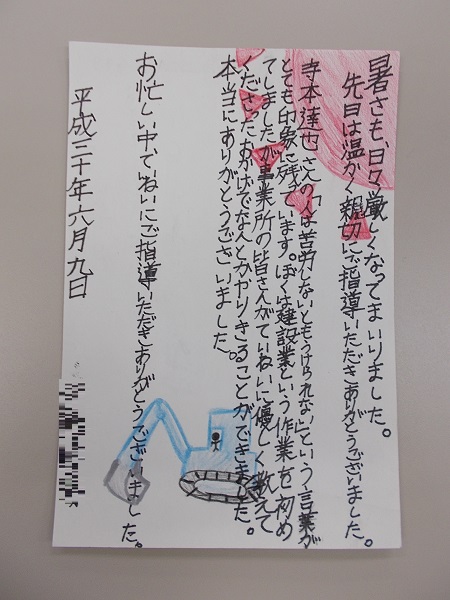 暑さも、日々厳しくなってまいりました。
先日は温かく親切にご指導いただきありがとうございました。
寺本達也さんの「人は苦労しないともうけられない」という言葉が
とても印象に残っています。ぼくは建設業という作業を初め
てしましたが事業所の皆さんがていねいに優しく教えて
くださったおかげでなんとかやりきることができました。
本当にありがとうございました。
お忙しい中、ていねいにご指導いただきありがとうございました。
平成三十年六月九日